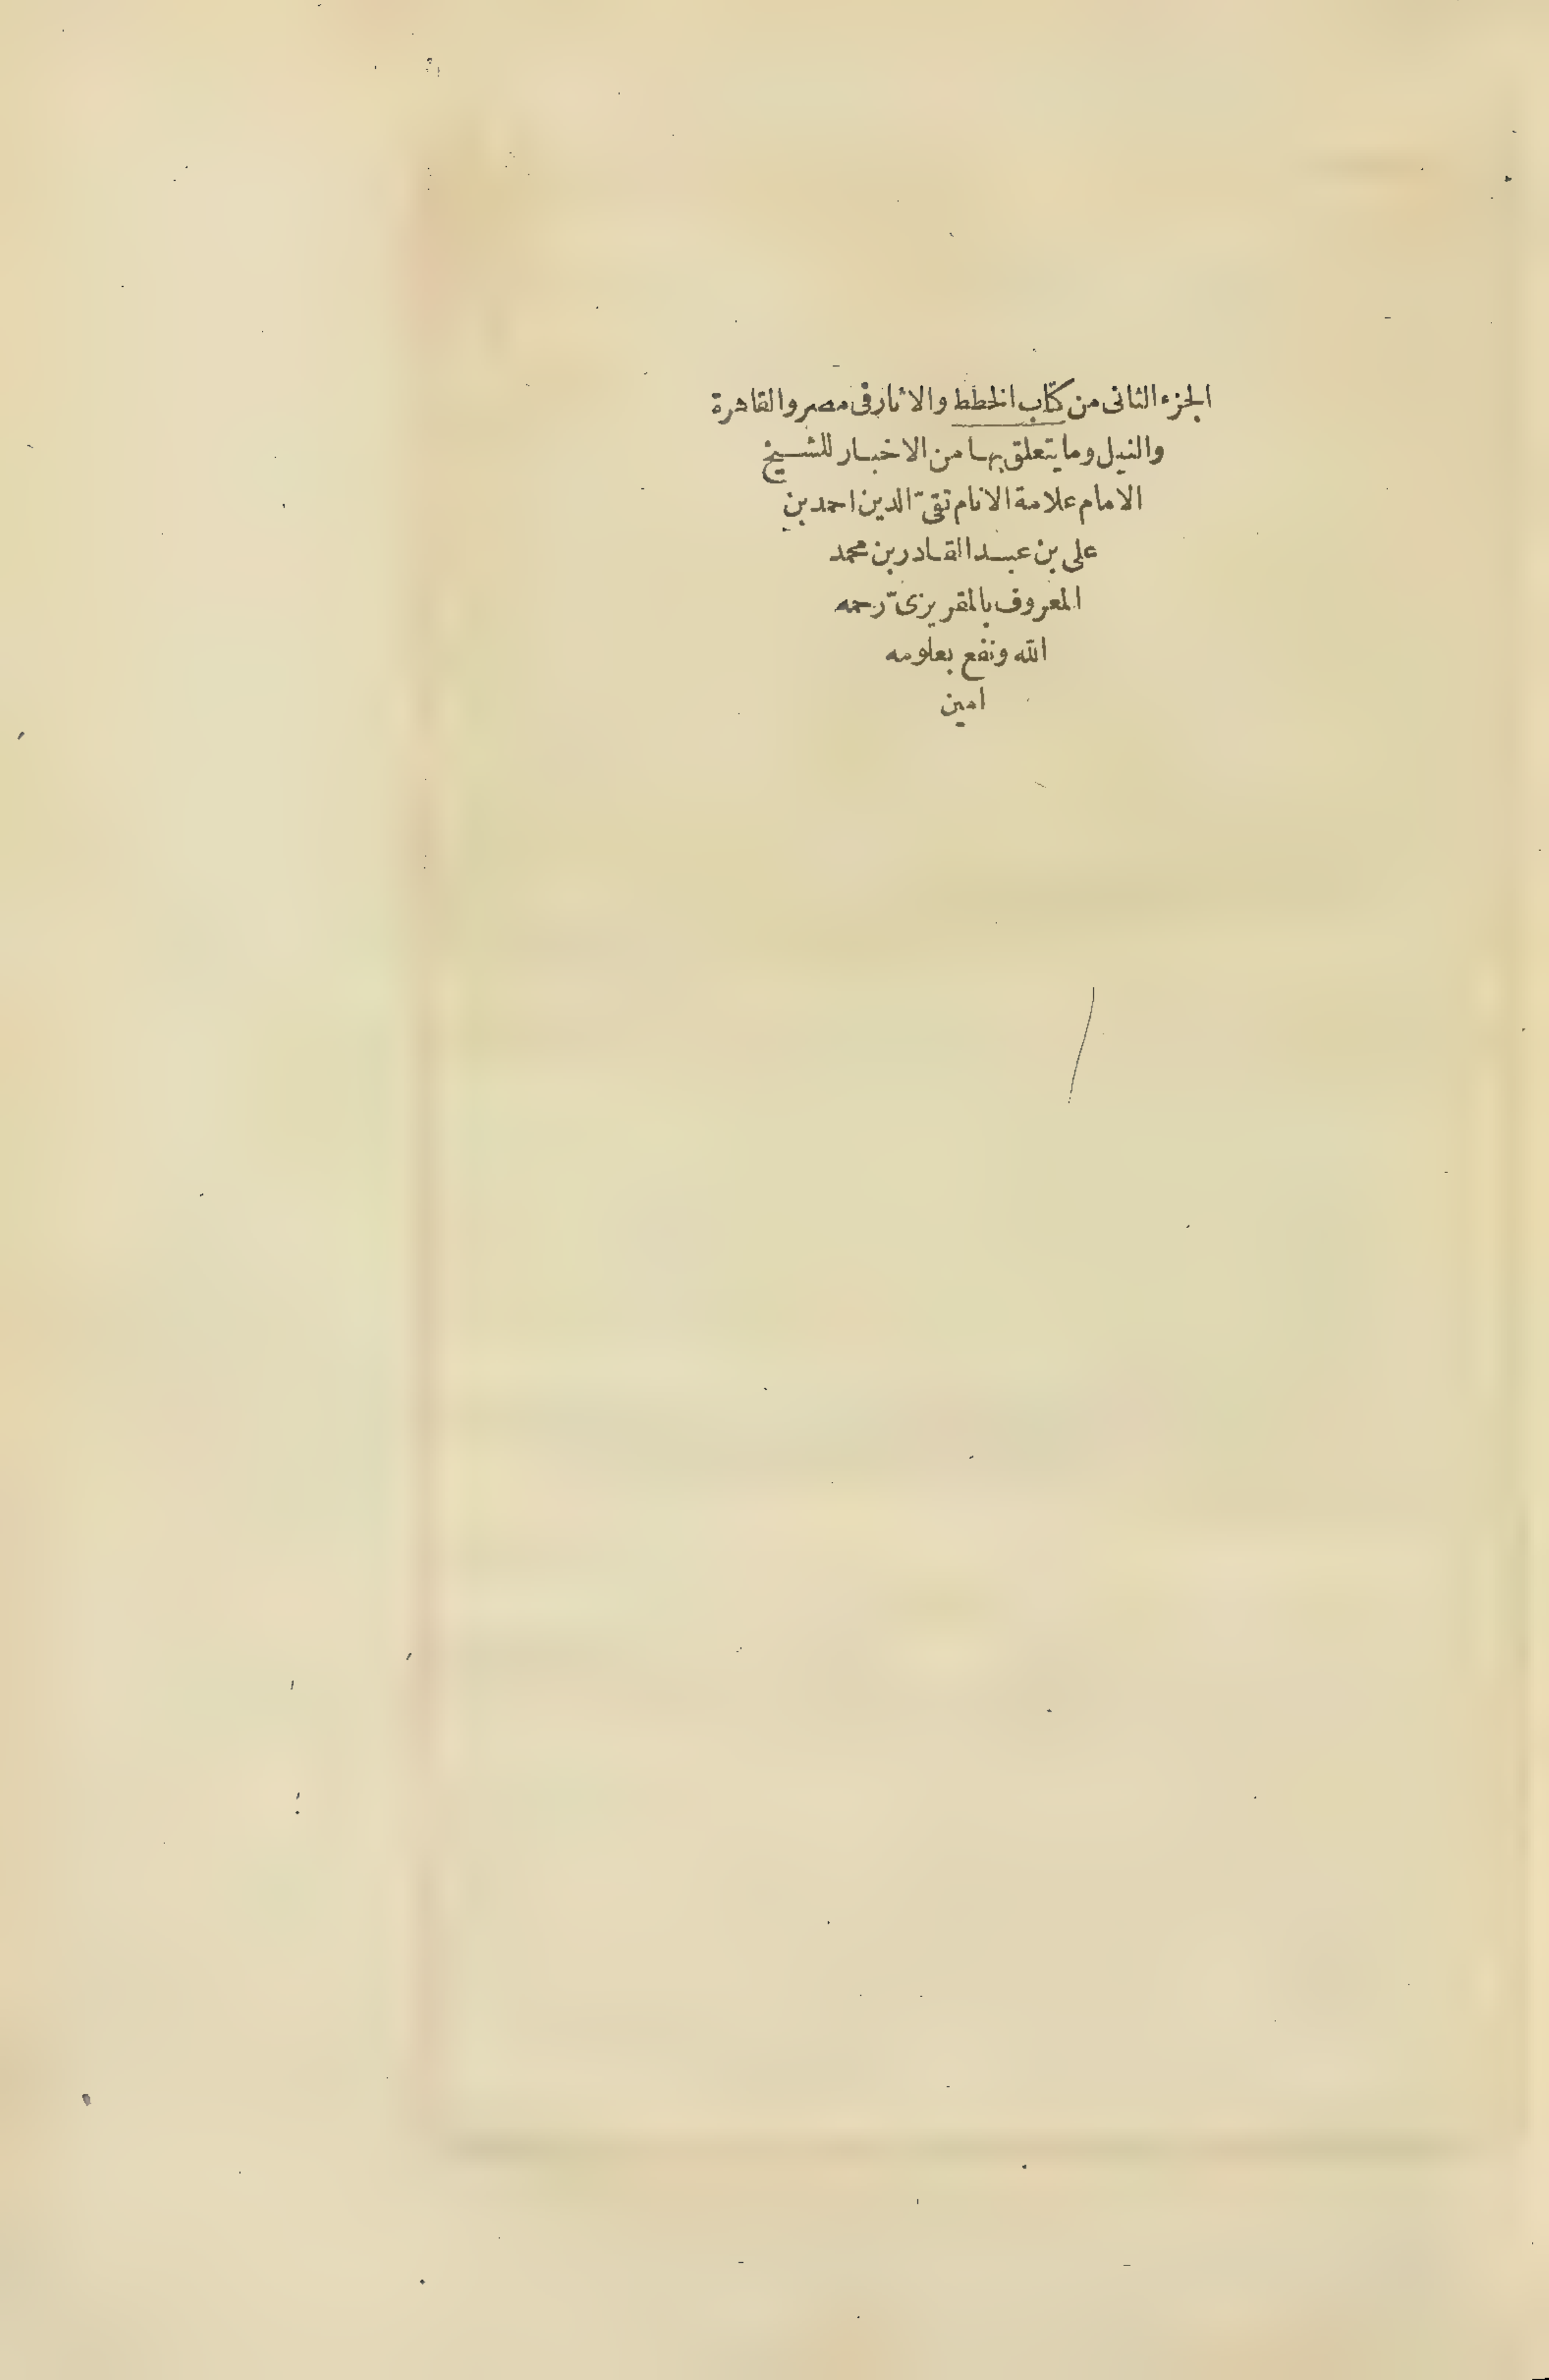 الجزء الثانى من كتاب الخطط والاثار فى مصر والقاهرة
والنيل وما يتعلق بها من الاخبار للشيخ
الامام علامة الانام تقىّ الدين احمد بن
على بن عبد القادر بن محمد
المعروف بالمقريزىّ رحمه
الله ونفع بعلومه
امين